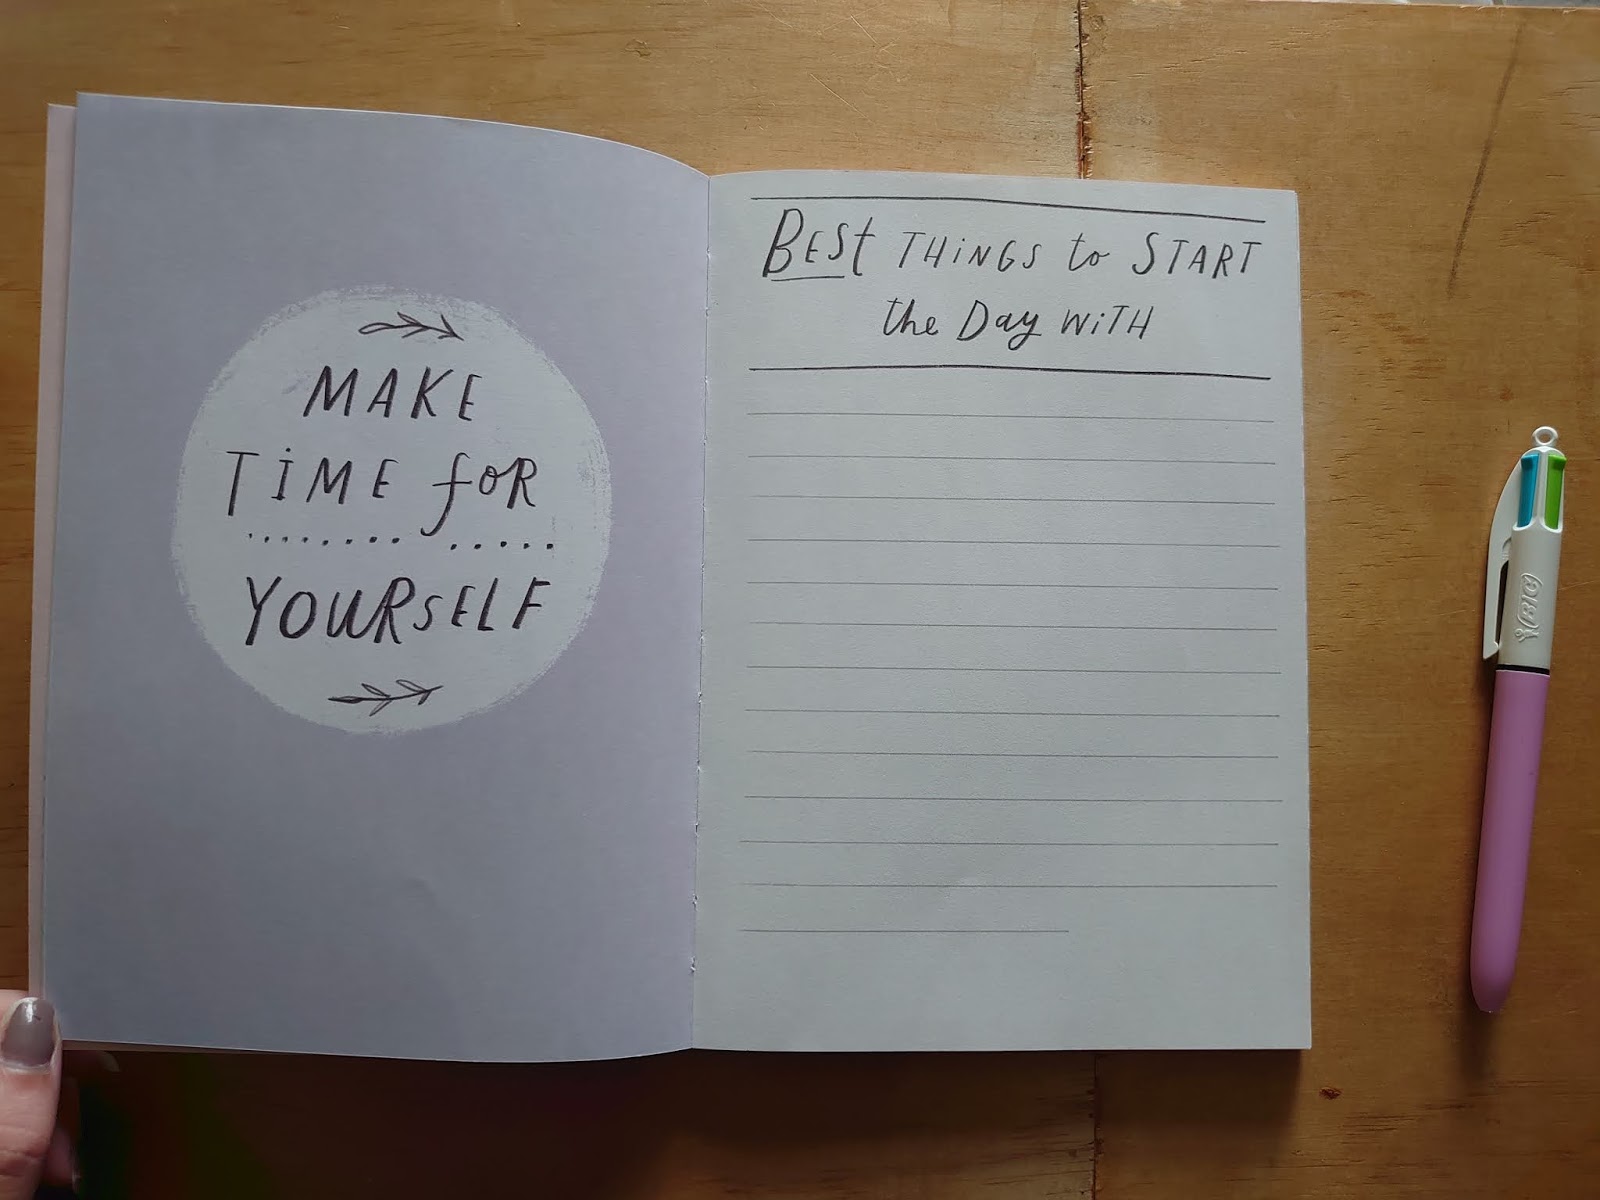 MAKE
TIME for
YOURSELF
BESt THiNGS to START
the Day WiTH
BIC